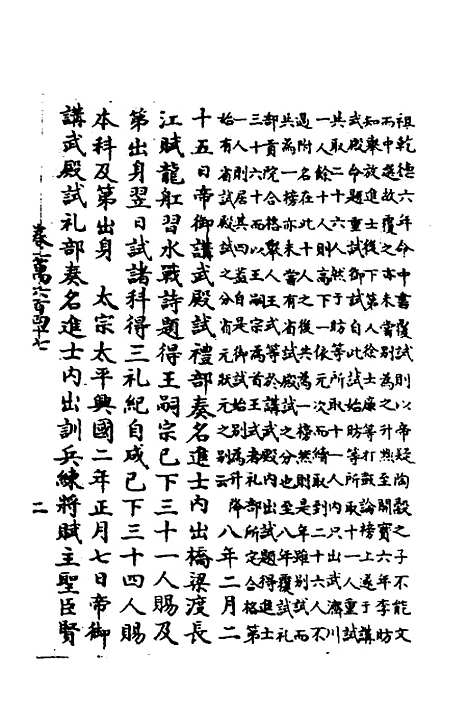 祖乾德六年令中書覆試則以帝疑陶穀之子不能文
而中選故覆之亦未嘗別為之升黜至開寶六年李昉
知舉放進士後下第人徐士廉等打鼓論榜上遂于講
武殿命題重試御試自此始昉等所取十一人重試
共取二十六人然于昉等所取十一人內只出武濟川
一人餘十人則高下一依元次而續取到二十六人不
過附名在此十人之後共為一榜然則是年雖別試而
共為一榜亦未嘗有省試殿試之分也至八年覆試礼
部貢院合格舉人王式等於講武殿內出試題得進士
三十六人而以王嗣宗為首王式者礼部所定合格第
一人則居其四蓋自是御試始別為升降
始有省試殿試之分省元狀元之別云
八年二月二
十五日帝御講武殿試禮部奏名進士內出橋梁渡長
江賦龍舡習水戰詩題得王嗣宗已下三十一人賜及
第出身翌日試諸科得三礼紀自成已下三十四人賜
本科及第出身　太宗太平興國二年正月七日帝御
講武殿試礼部奏名進士內出訓兵練將賦主聖臣賢
卷一萬六百四十七
二